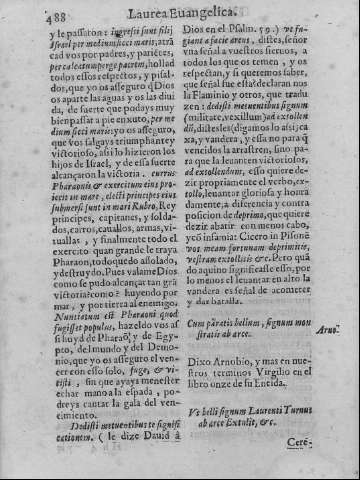 488 Laurea Euangelica.
y le passaron: ingressi sunt filij
Israel per medium sicci maris, atrã
cad vos por padres, y pariẽtes,
per calcatum perge pacrem, hollad
todos estos respectos, y pisal-
dos, que yo os asseguro q̃ Dios
os aparte las aguas y os las diui
da, de suerte que podays muy
bien passar a pie enxuto, per me
dium sicci maris: yo os asseguro,
que vos salgays triumphante y
victorioso, assi lo hizieron los
hijos de Israel, y de essa suerte
alcançaron la victoria. currus
Pharaonis & exercitum eius pro-
iecit in mare, electi principes eius
submersi sunt in mari Rubro, Rey
principes, capitanes, y solda-
dos, carros, cauallos, armas, vi-
tuallas, y finalmente todo el
exercito quan grande le traya
Pharaon, todo quedo assolado,
y destruydo. Pues valame Dios
como se pudo alcançar tan grã
victoria? como? huyendo por
mar, y por tierra al enemigo.
Nuntiatum est Pharaoni quod
fugisset populus, hazeldo vos assi
si huyd de Pharaõ, y de Egy-
pto, del mundo y del Demo-
nio, que yo os asseguro el ven-
cer con esso solo, fuge, & vi-
cisti, sin que ayays menester
echar mano a la espada, po-
dreys cantar la gala del ven-
cimiento.
Dedisti metuentibus te signifi
cationem. (le dize Dauid à
Dios en el Psalm. 59.) vt fu-
giant a facie arcus, distes, señor
vna señal a vuestros sieruos, a
todos los que os temen, y os
respectan, y si queremos saber,
que señal fue esta? declaran nos
la Flaminio y otros, que tradu
zen: dedisti metuentibus signum
(militare, vexillum) ad extollen
dũ, distesles (digamos lo assi) ca
xa, y vandera, y essa no para q̃
vencidos la arrastren, sino pa-
ra que la leuanten victoriosos,
ad extollendum, esso quiere de-
zir propriamente el verbo, ex-
tollo, leuantar gloriosa y honra
damente, a diferencia y contra
posicion de deprimo, que quiere
dezir abatir con menos cabo,
y cõ infamia: Cicero in Pisonẽ
vos meam fortunam deprimitis,
vestram extollitis &c. Pero quã
do aquino significasse esso, por
lo menos el leuantar en alto la
vandera es señal de acometer
y dar batalla.
Cum patratis bellum, signum mon
stratis ab arce.
Arno.
Dixo Arnobio, y mas en nue-
stros terminos Virgilio en el
libro onze de su Eneida.
Vt belli signum Laurenti Turnus
ab arce Extulit, &c.
Cere-